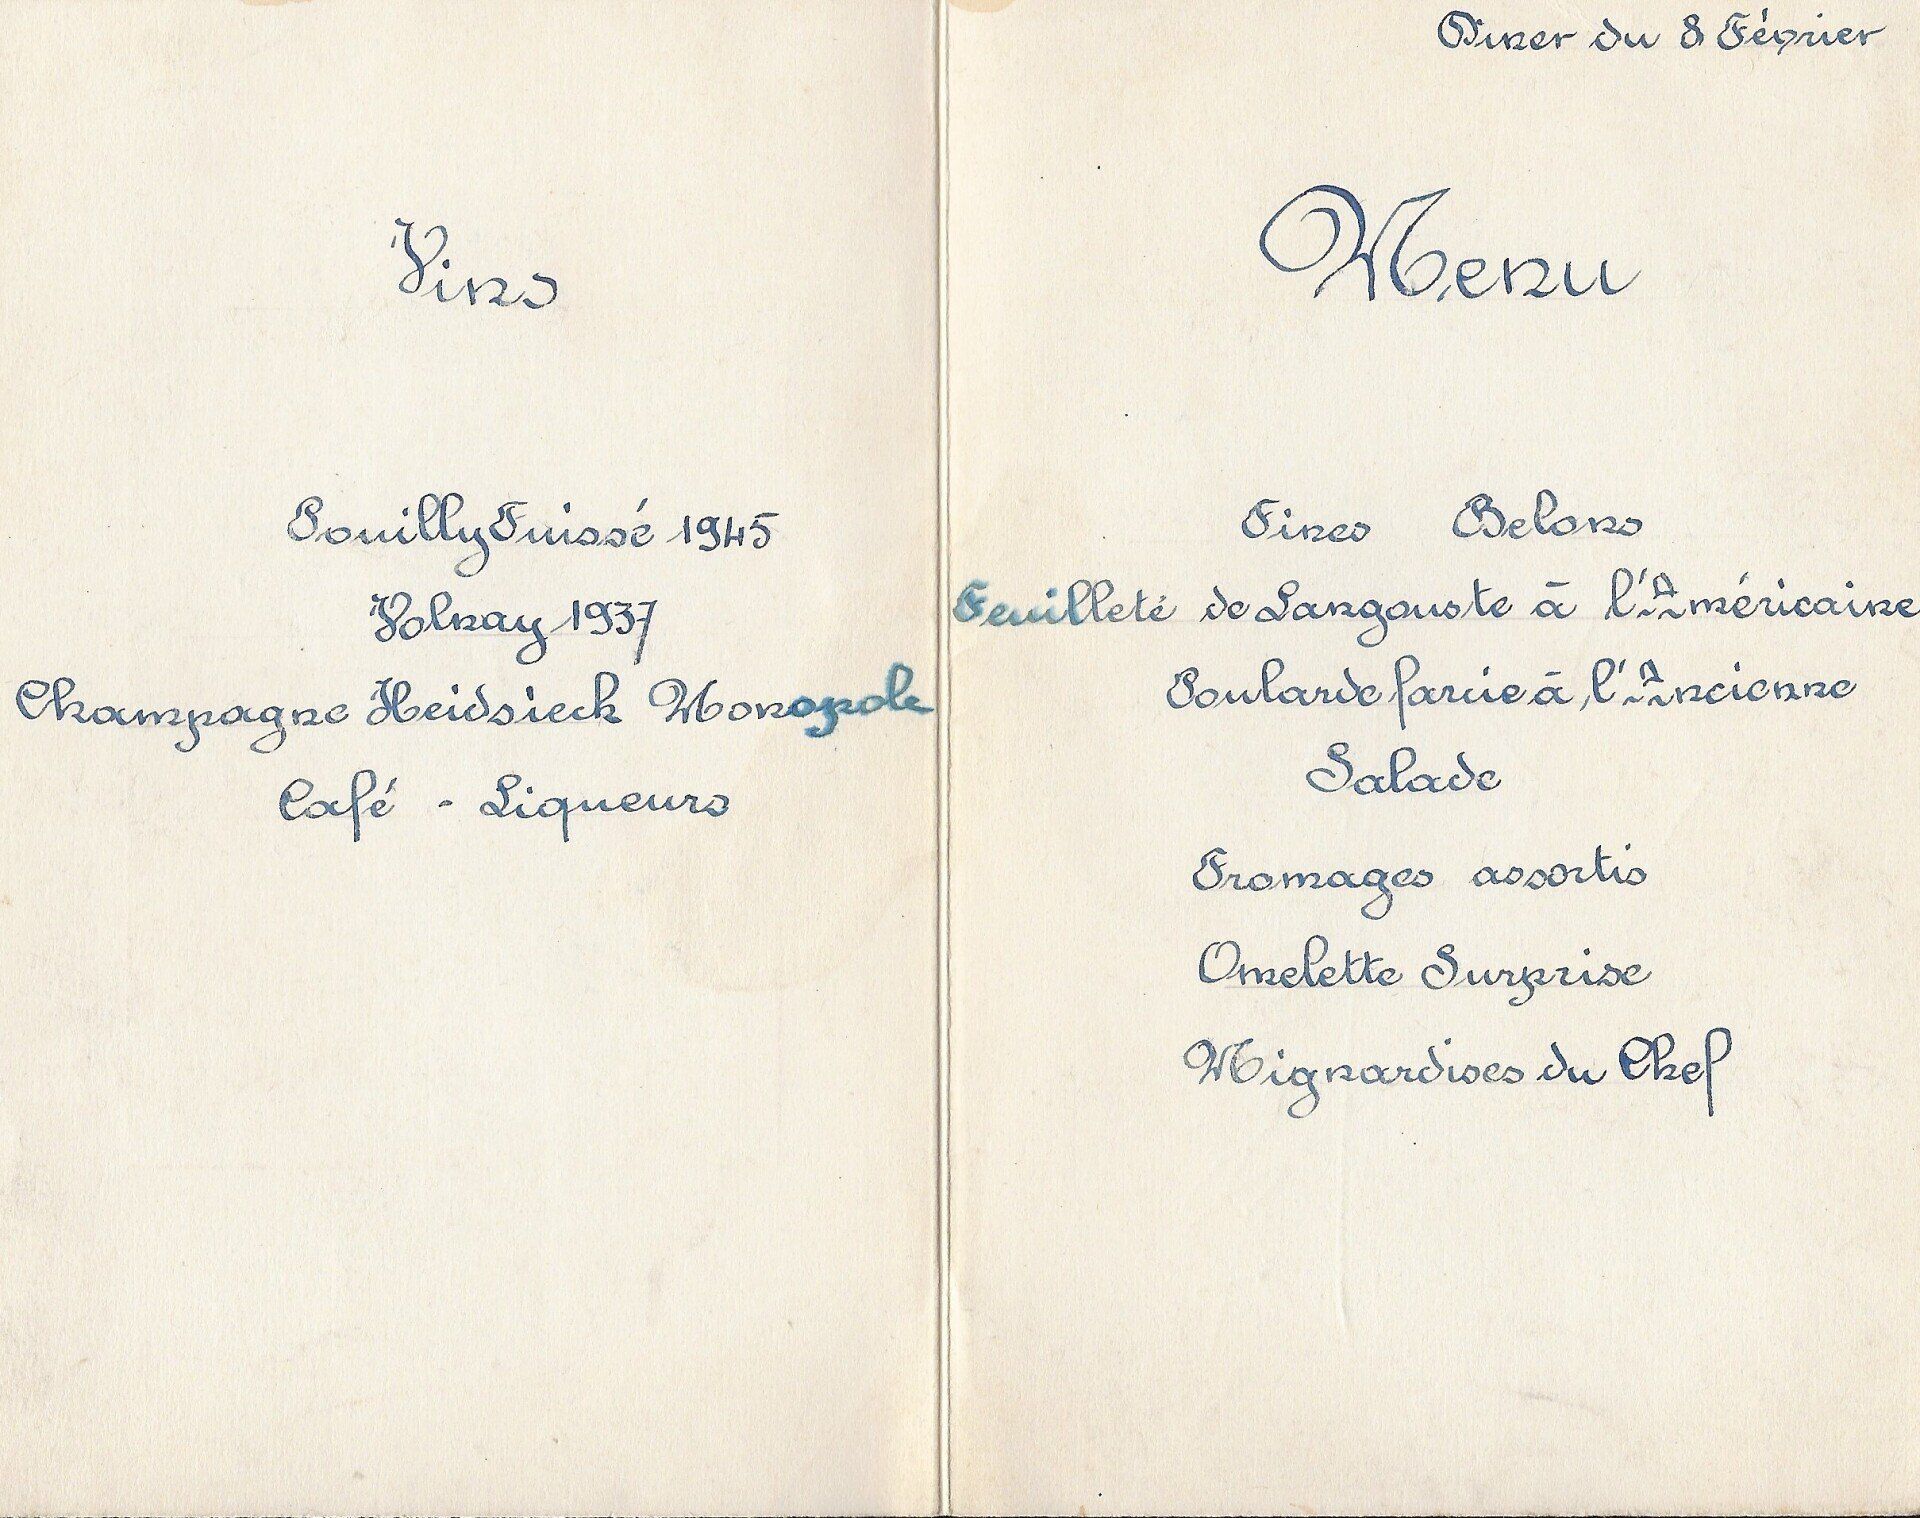 Vins
Pouilly Fuissé 1945
Volnay 1937
Champagne Heidsieck Monopole
Café - Liqueurs
Diner du 8 Février
Menu
Fines Belons
Feuilleté de Langouste à l'Américaine
Poularde farcie à l'Ancienne
Salade
Fromages assortis
Omelette Surprise
Mignardises du Chef